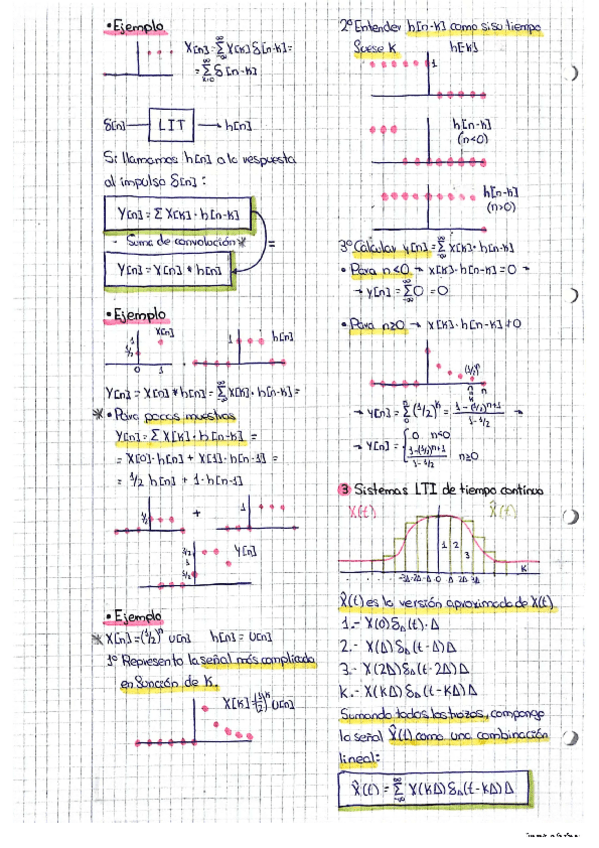 • Ejemplo
X[n] = Σ X[K] δ[n-K] =
= Σ δ[n-K]
δ[n] LIT h[n]
Si llamamos h[n] a la respuesta
al impulso δ[n] :
Y[n] = Σ X[K] · h[n-K]
- Suma de convolución * =
Y[n] = X[n] * h[n]
• Ejemplo
X[n]
1
1/2
0 1
1 h[n]
Y[n] = X[n] * h[n] = Σ X[K] · h[n-K] =
* • Para pocas muestras
Y[n] = Σ X[K] · h[n-K] =
= X[0] · h[n] + X[1] · h[n-1] =
= 1/2 h[n] + 1 · h[n-1]
1/2 + 1
3/2
1
1/2
Y[n]
• Ejemplo
* X[n] = (1/2)ⁿ U[n] h[n] = U[n]
1º Represento la señal más complicada
en función de K.
U[n]
2º Entender h[n-K] como si su tiempo
fuese K h[-K]
1
h[n-K]
(n<0)
h[n-K]
(n>0)
3º Calcular y[n] = Σ X[K] · h[n-K]
• Para n<0 → X[K] · h[n-K] = 0 →
→ Y[n] = Σ 0 = 0
• Para n≥0 → X[K] · h[n-K] ≠ 0
(1/2)ⁿ
n
→ Y[n] = Σ (1/2)ᴷ = 1-(1/2)ⁿ⁺¹ / 1-1/2 →
→ Y[n] = { 0 n<0
1-(1/2)ⁿ⁺¹ / 1-1/2 n≥0
3 Sistemas LTI de tiempo continuo
X(t) X̂(t)
1 2 3
K
-3Δ -2Δ -Δ 0 Δ 2Δ 3Δ
X̂(t) es la versión aproximada de X(t)
1.- X(0) δΔ(t) · Δ
2.- X(Δ) δΔ(t-Δ) Δ
3.- X(2Δ) δΔ(t-2Δ) Δ
K.- X(KΔ) δΔ(t-KΔ) Δ
Sumando todos los trozos, compongo
la señal X̂(t) como una combinación
lineal:
X̂(t) = Σ X(KΔ) δΔ(t-KΔ) Δ